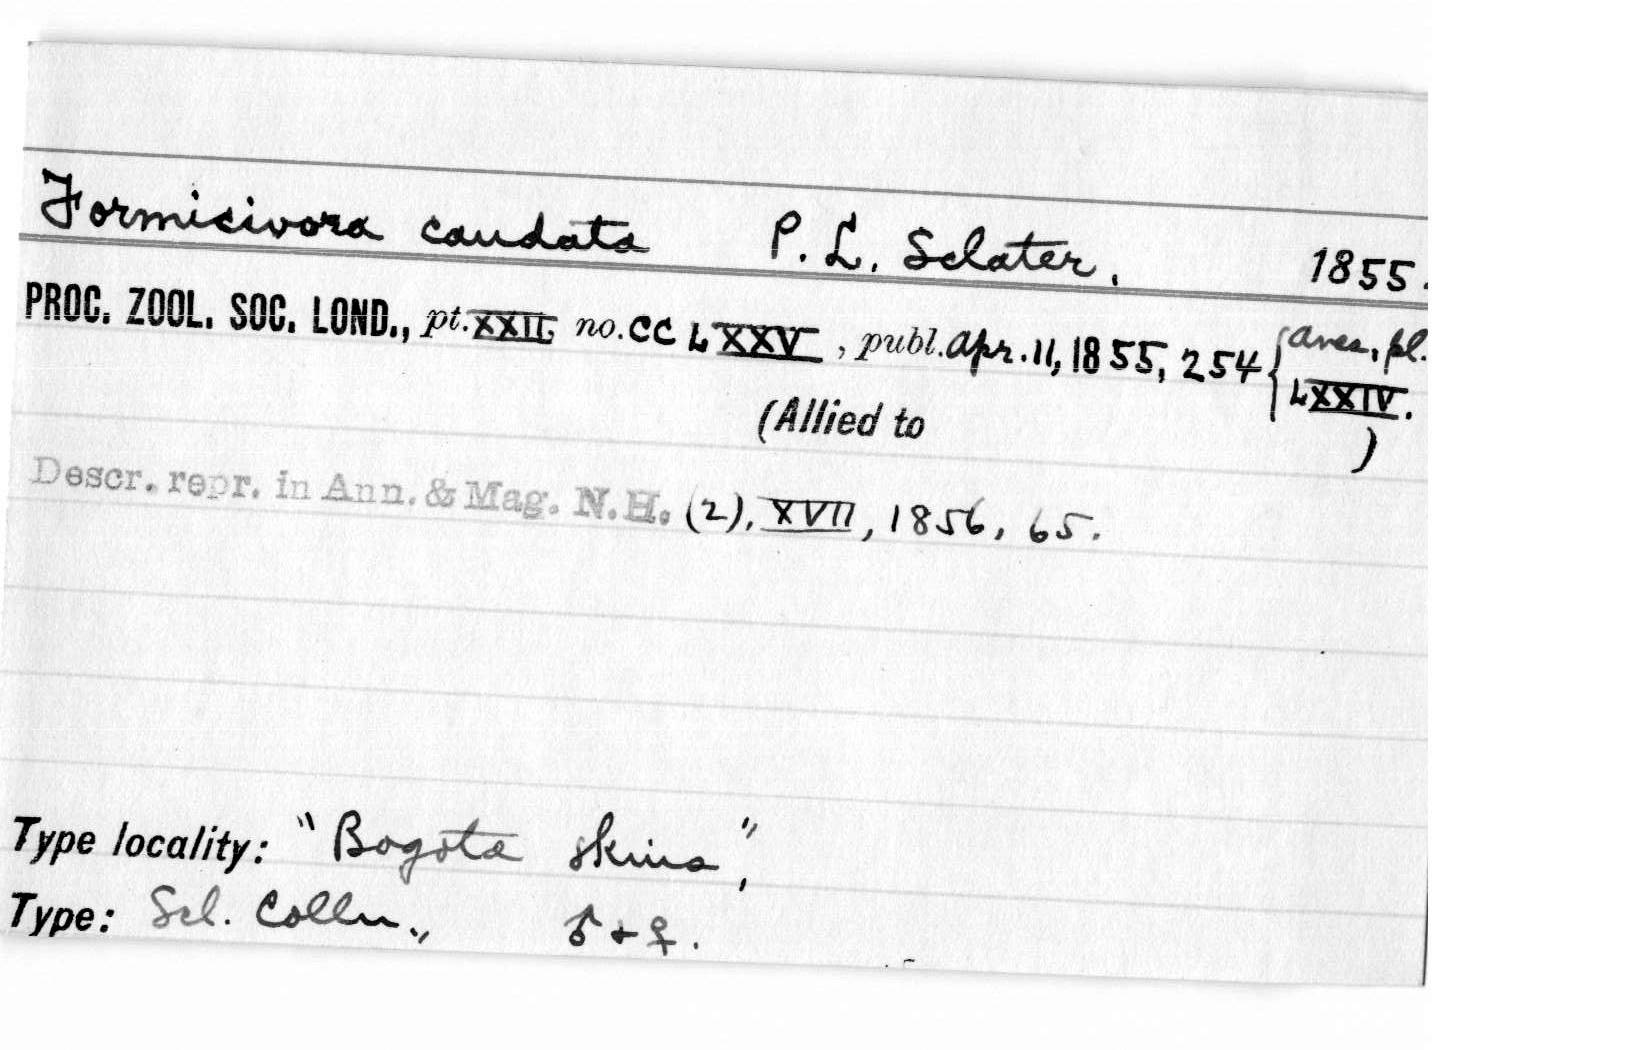 Formicivora caudata P. L. Sclater, 1855.
PROC. ZOOL. SOC. LOND., pt. XXII, no. CCLXXV, publ. Apr. 11, 1855, 254 { Aves, pl. LXXIV.
(Allied to )
Descr. repr. in Ann. & Mag. N.H. (2), XVII, 1856, 65.
Type locality: "Bogota skins",
Type: Scl. Colln., ♂ + ♀.